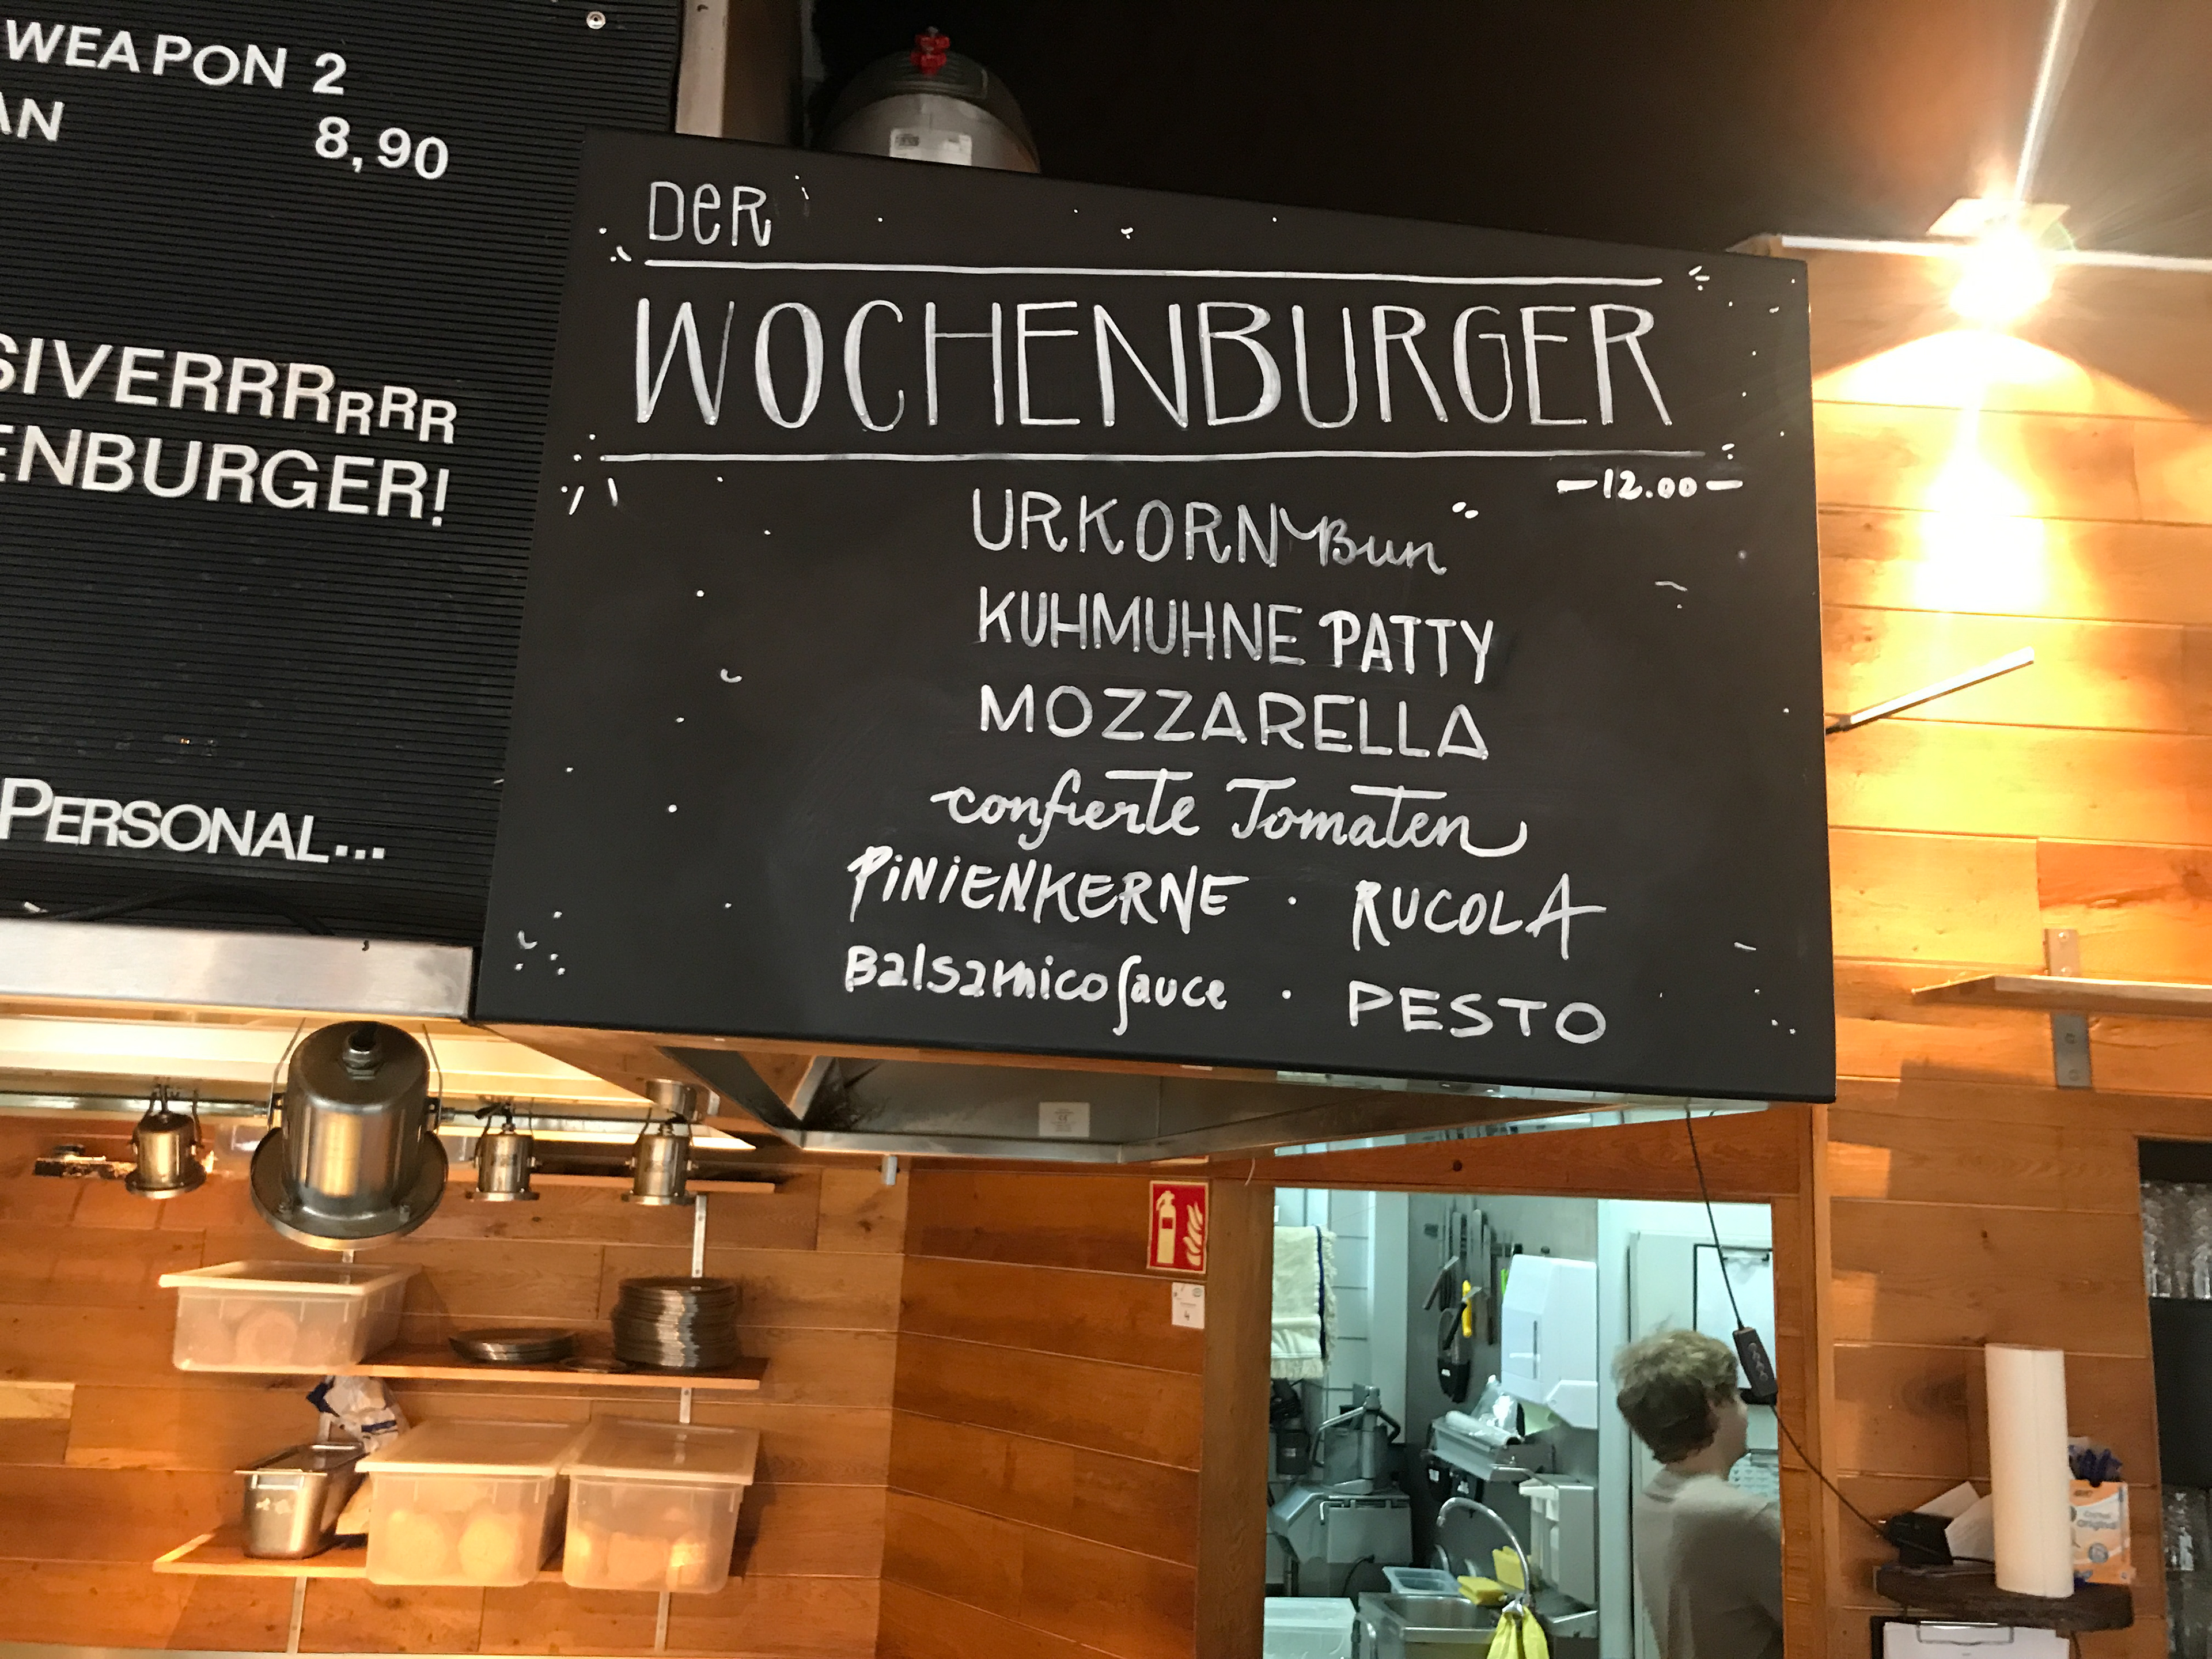 WEAPON 2
AN 8,90
SIVERRRRRR
ENBURGER!
PERSONAL...
DeR
WOCHENBURGER
-12.00-
URKORN Bun
KUHMUHNE PATTY
MOZZARELLA
confierte Tomaten
PiNiENKERNE · RUCOLA
BalsamicoSauce · PESTO
Original